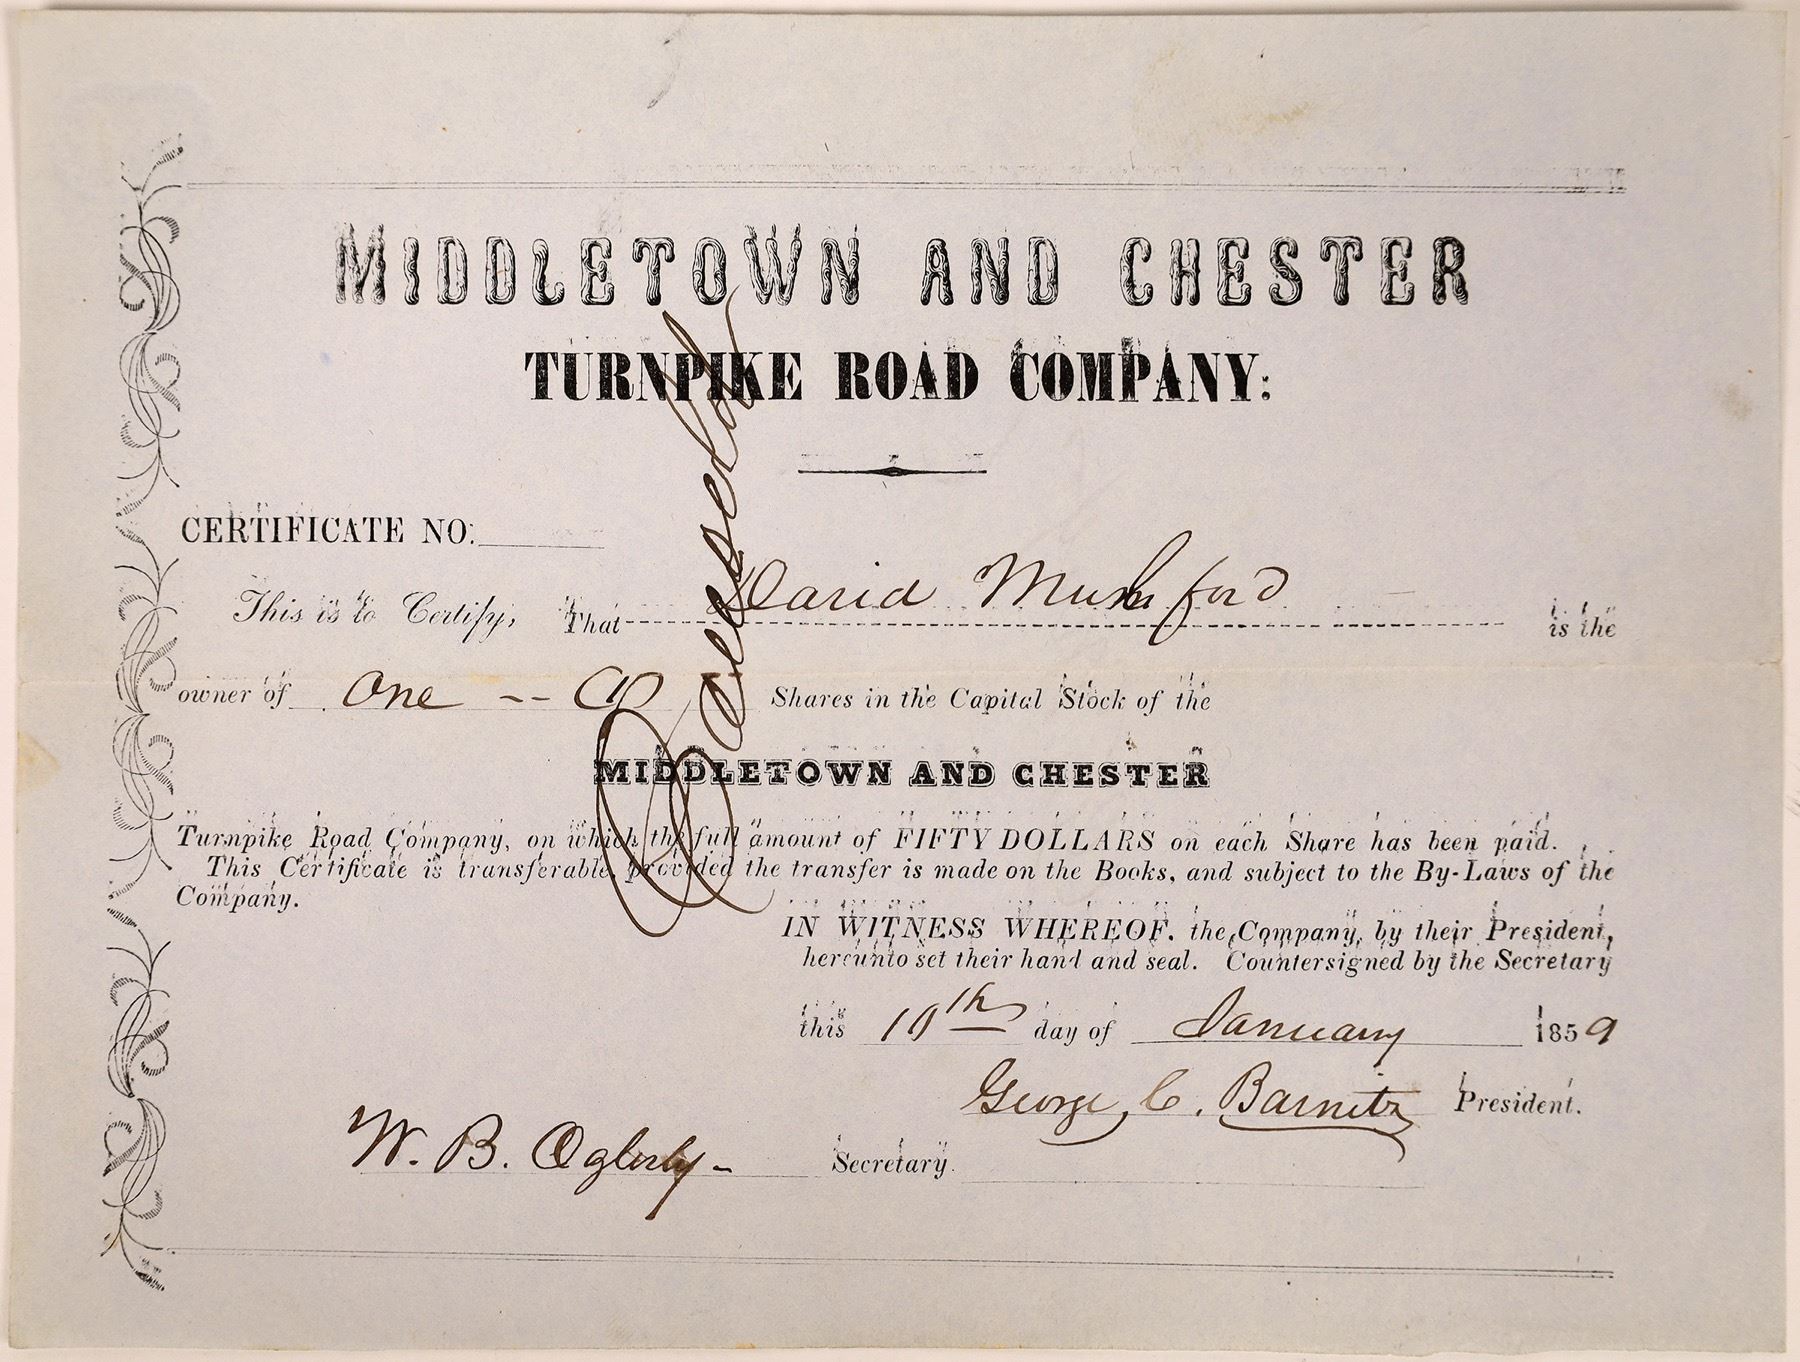 MIDDLETOWN AND CHESTER
TURNPIKE ROAD COMPANY:
CERTIFICATE NO:
This is to Certify, That David Mumford is the
owner of One -- (1) Shares in the Capital Stock of the
MIDDLETOWN AND CHESTER
Turnpike Road Company, on which the full amount of FIFTY DOLLARS on each Share has been paid.
This Certificate is transferable, provided the transfer is made on the Books, and subject to the By-Laws of the
Company.
IN WITNESS WHEREOF, the Company, by their President,
hereunto set their hand and seal. Countersigned by the Secretary
this 10th day of January 1859
George C. Barnitz President.
W. B. Oglesby - Secretary.
Cancelled